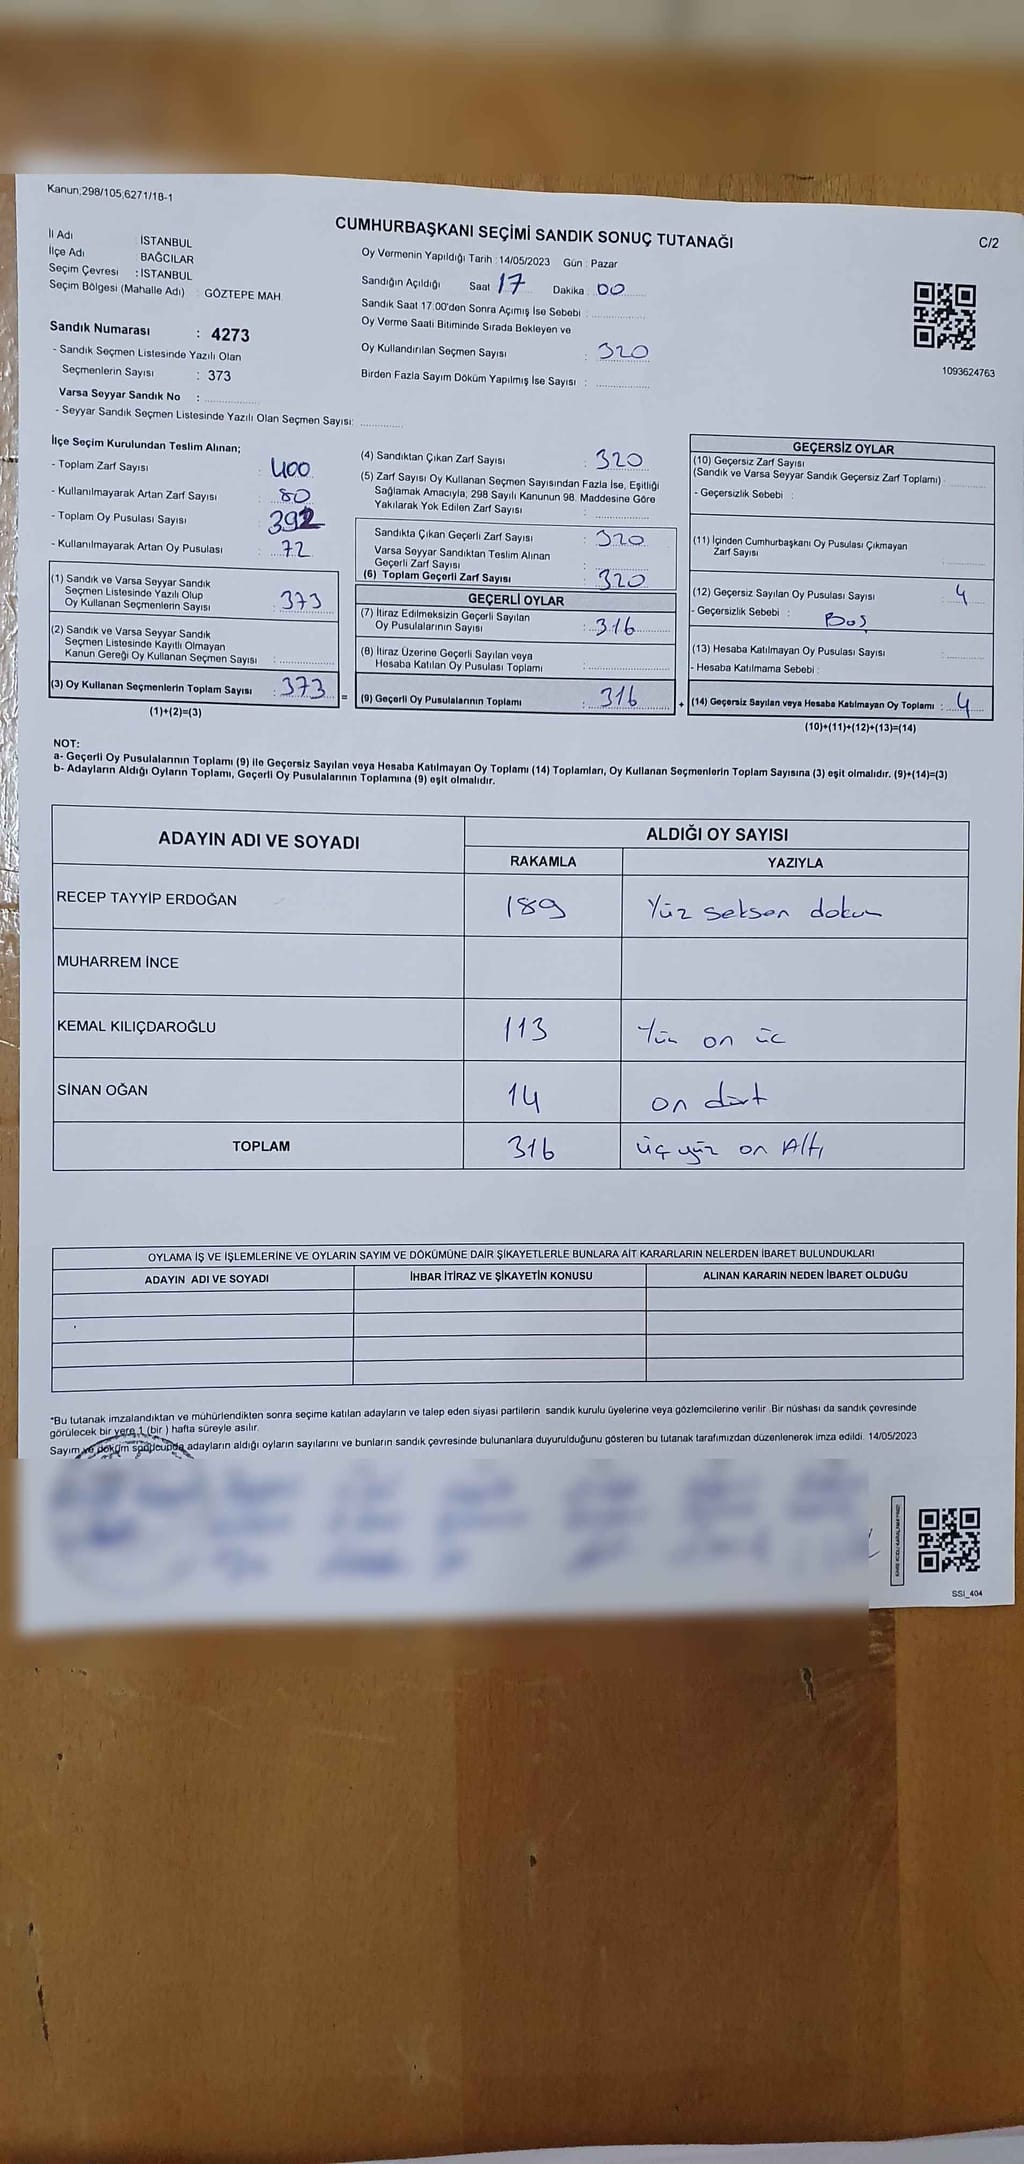 Kanun;298/105,6271/18-1
CUMHURBAŞKANI SEÇİMİ SANDIK SONUÇ TUTANAĞI
C/2
İl Adı İSTANBUL
İlçe Adı BAĞCILAR
Seçim Çevresi : İSTANBUL
Seçim Bölgesi (Mahalle Adı) : GÖZTEPE MAH.
Sandık Numarası : 4273
- Sandık Seçmen Listesinde Yazılı Olan
Seçmenlerin Sayısı : 373
Varsa Seyyar Sandık No :
- Seyyar Sandık Seçmen Listesinde Yazılı Olan Seçmen Sayısı:
Oy Vermenin Yapıldığı Tarih : 14/05/2023 Gün : Pazar
Sandığın Açıldığı Saat 17 Dakika 00
Sandık Saat 17:00'den Sonra Açımış İse Sebebi :
Oy Verme Saati Bitiminde Sırada Bekleyen ve
Oy Kullandırılan Seçmen Sayısı : 320
Birden Fazla Sayım Döküm Yapılmış İse Sayısı :
1093624763
İlçe Seçim Kurulundan Teslim Alınan;
- Toplam Zarf Sayısı : 400
- Kullanılmayarak Artan Zarf Sayısı : 80
- Toplam Oy Pusulası Sayısı : 392
- Kullanılmayarak Artan Oy Pusulası : 72
(1) Sandık ve Varsa Seyyar Sandık
Seçmen Listesinde Yazılı Olup
Oy Kullanan Seçmenlerin Sayısı : 373
(2) Sandık ve Varsa Seyyar Sandık
Seçmen Listesinde Kayıtlı Olmayan
Kanun Gereği Oy Kullanan Seçmen Sayısı :
(3) Oy Kullanan Seçmenlerin Toplam Sayısı : 373
(1)+(2)=(3)
=
(4) Sandıktan Çıkan Zarf Sayısı : 320
(5) Zarf Sayısı Oy Kullanan Seçmen Sayısından Fazla İse, Eşitliği
Sağlamak Amacıyla, 298 Sayılı Kanunun 98. Maddesine Göre
Yakılarak Yok Edilen Zarf Sayısı :
Sandıkta Çıkan Geçerli Zarf Sayısı : 320
Varsa Seyyar Sandıktan Teslim Alınan
Geçerli Zarf Sayısı :
(6) Toplam Geçerli Zarf Sayısı : 320
GEÇERLİ OYLAR
(7) İtiraz Edilmeksizin Geçerli Sayılan
Oy Pusulalarının Sayısı : 316
(8) İtiraz Üzerine Geçerli Sayılan veya
Hesaba Katılan Oy Pusulası Toplamı :
(9) Geçerli Oy Pusulalarının Toplamı : 316
+
GEÇERSİZ OYLAR
(10) Geçersiz Zarf Sayısı
(Sandık ve Varsa Seyyar Sandık Geçersiz Zarf Toplamı) :
- Geçersizlik Sebebi :
(11) İçinden Cumhurbaşkanı Oy Pusulası Çıkmayan
Zarf Sayısı :
(12) Geçersiz Sayılan Oy Pusulası Sayısı : 4
- Geçersizlik Sebebi : Boş
(13) Hesaba Katılmayan Oy Pusulası Sayısı :
- Hesaba Katılmama Sebebi :
(14) Geçersiz Sayılan veya Hesaba Katılmayan Oy Toplamı : 4
(10)+(11)+(12)+(13)=(14)
NOT:
a- Geçerli Oy Pusulalarının Toplamı (9) ile Geçersiz Sayılan veya Hesaba Katılmayan Oy Toplamı (14) Toplamları, Oy Kullanan Seçmenlerin Toplam Sayısına (3) eşit olmalıdır. (9)+(14)=(3)
b- Adayların Aldığı Oyların Toplamı, Geçerli Oy Pusulalarının Toplamına (9) eşit olmalıdır.
ADAYIN ADI VE SOYADI ALDIĞI OY SAYISI
RAKAMLA YAZIYLA
RECEP TAYYİP ERDOĞAN 189 Yüz seksen dokuz
MUHARREM İNCE
KEMAL KILIÇDAROĞLU 113 Yüz on üç
SİNAN OĞAN 14 on dört
TOPLAM 316 üç yüz on Altı
OYLAMA İŞ VE İŞLEMLERİNE VE OYLARIN SAYIM VE DÖKÜMÜNE DAİR ŞİKAYETLERLE BUNLARA AİT KARARLARIN NELERDEN İBARET BULUNDUKLARI
ADAYIN ADI VE SOYADI İHBAR İTİRAZ VE ŞİKAYETİN KONUSU ALINAN KARARIN NEDEN İBARET OLDUĞU
*Bu tutanak imzalandıktan ve mühürlendikten sonra seçime katılan adayların ve talep eden siyasi partilerin sandık kurulu üyelerine veya gözlemcilerine verilir. Bir nüshası da sandık çevresinde
görülecek bir yere 1 (bir ) hafta süreyle asılır.
Sayım ve döküm sonucunda adayların aldığı oyların sayılarını ve bunların sandık çevresinde bulunanlara duyurulduğunu gösteren bu tutanak tarafımızdan düzenlenerek imza edildi. 14/05/2023
SSI_404